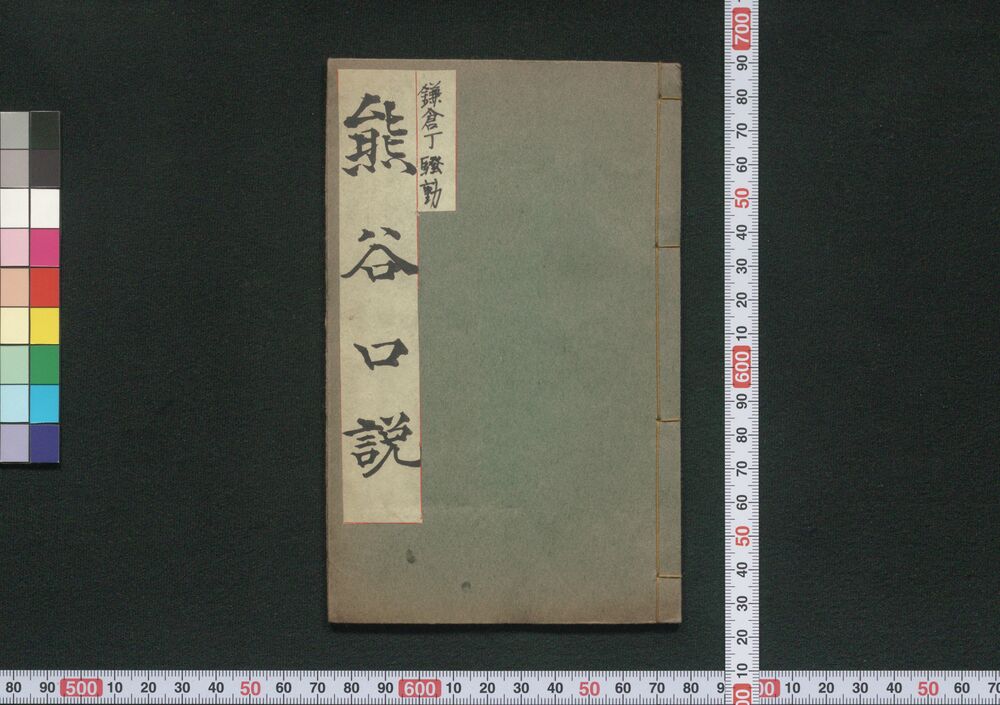 鎌倉丁騒動
熊谷口説
700
90
80
70
60
50
40
30
20
10
600
90
80
70
60
50
40
30
20
10
80 90 500 10 20 30 40 50 60 70 80 90 600 10 20 30 40 50 60 70 80 10 20 30 40 50 60